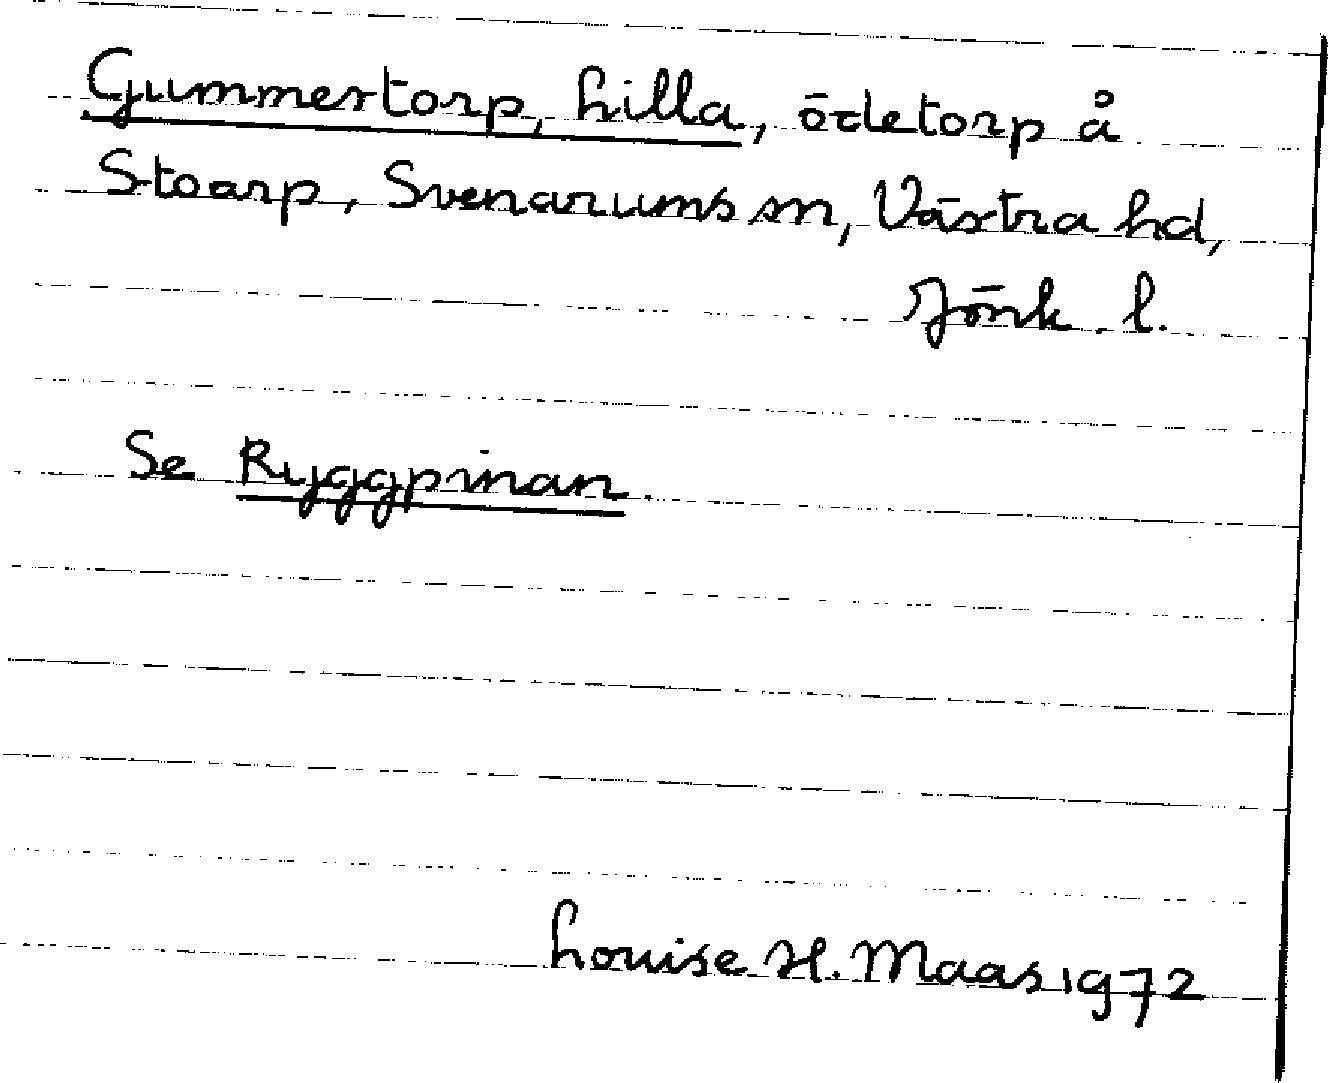 Gummertorp, Lilla, ödetorp å
Stoarp, Svenarums sn, Västra hd,
Jönk. l.
Se Ryggpinan.
Louise H. Maas 1972